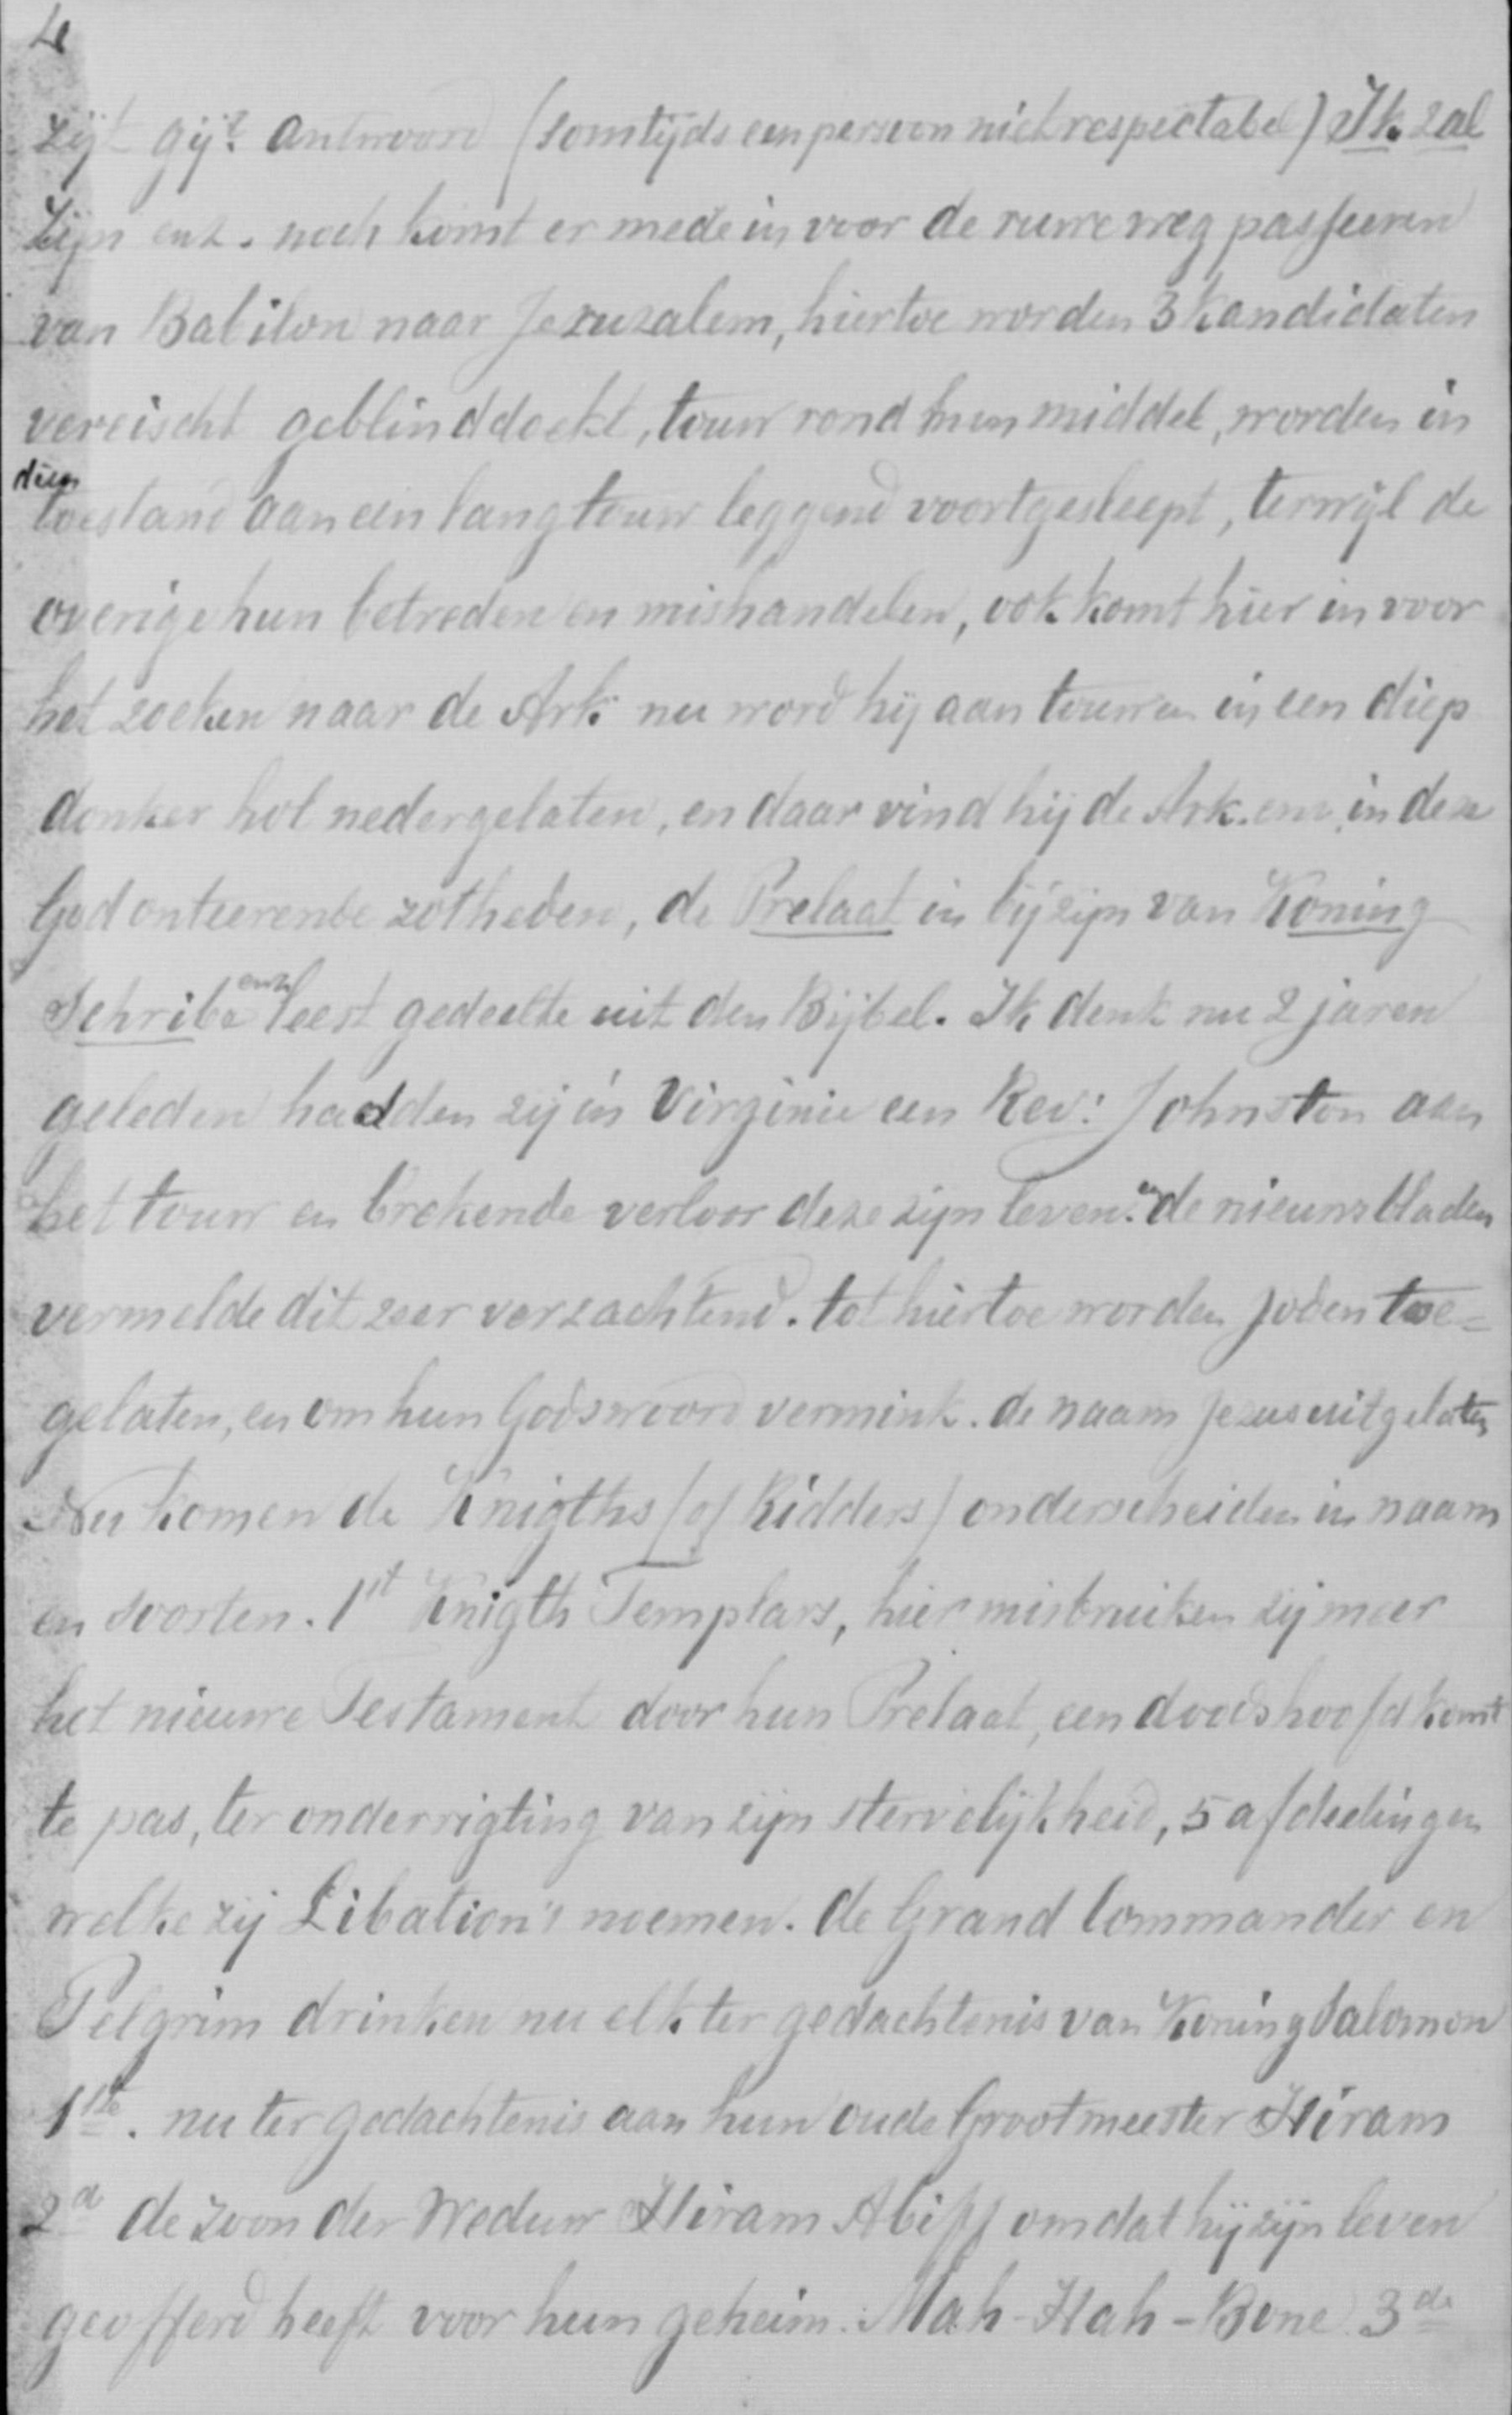 4
zijt gij? antwoord (somtijds een persoon niet respectabel) Ik zal
zijn enz. noch komt er mede in voor de ruwe weg passeeren
van Babilon naar Jeruzalem, hiertoe worden 3 kandidaten
vereischt geblinddoekt, touw rond hun middel, worden in
dien
toestand aan een lang touw leggend voortgesleept, terwijl de
overige hun betreden en mishandelen, ook komt hier in voor
het zoeken naar de Ark nu word hij aan touwen in een diep
donker hol nedergelaten, en daar vind hij de Ark. enz. in deze
God onteerende zotheden, de Prelaat in bijzijn van Koning
Schribe enz leest gedeelte uit den Bijbel. Ik denk nu 2 jaren
geleden hadden zij in Virginie een Rev: Johnston aan
het touw en brekende verloor deze zijn leven. en de nieuwsbladen
vermelde dit zeer verzachtend. tot hiertoe worden Joden toe=
gelaten, en om hun Godswoord vermink. de naam Jezus uitgelaten
Nu komen de Knigths (of Ridders) onderscheiden in naam
en soorten. 1st Knigth Templars, hier misbruiken zij meer
het nieuwe Testament door hun Prelaat, een doodshoofd komt
te pas, ter onderrigting van zijn stervelijkheid, 5 afdeelingen
welke zij Libation's noemen. de Grand Commander en
Pelgrim drinken nu elk ter gedachtenis van Koning Salomon
1ste. nu ter gedachtenis aan hun oude Grootmeester Hiram
2d de zoon der Weduw Hiram Abiff omdat hij zijn leven
geofferd heeft voor hun geheim. Mah-Hah-Bone 3de